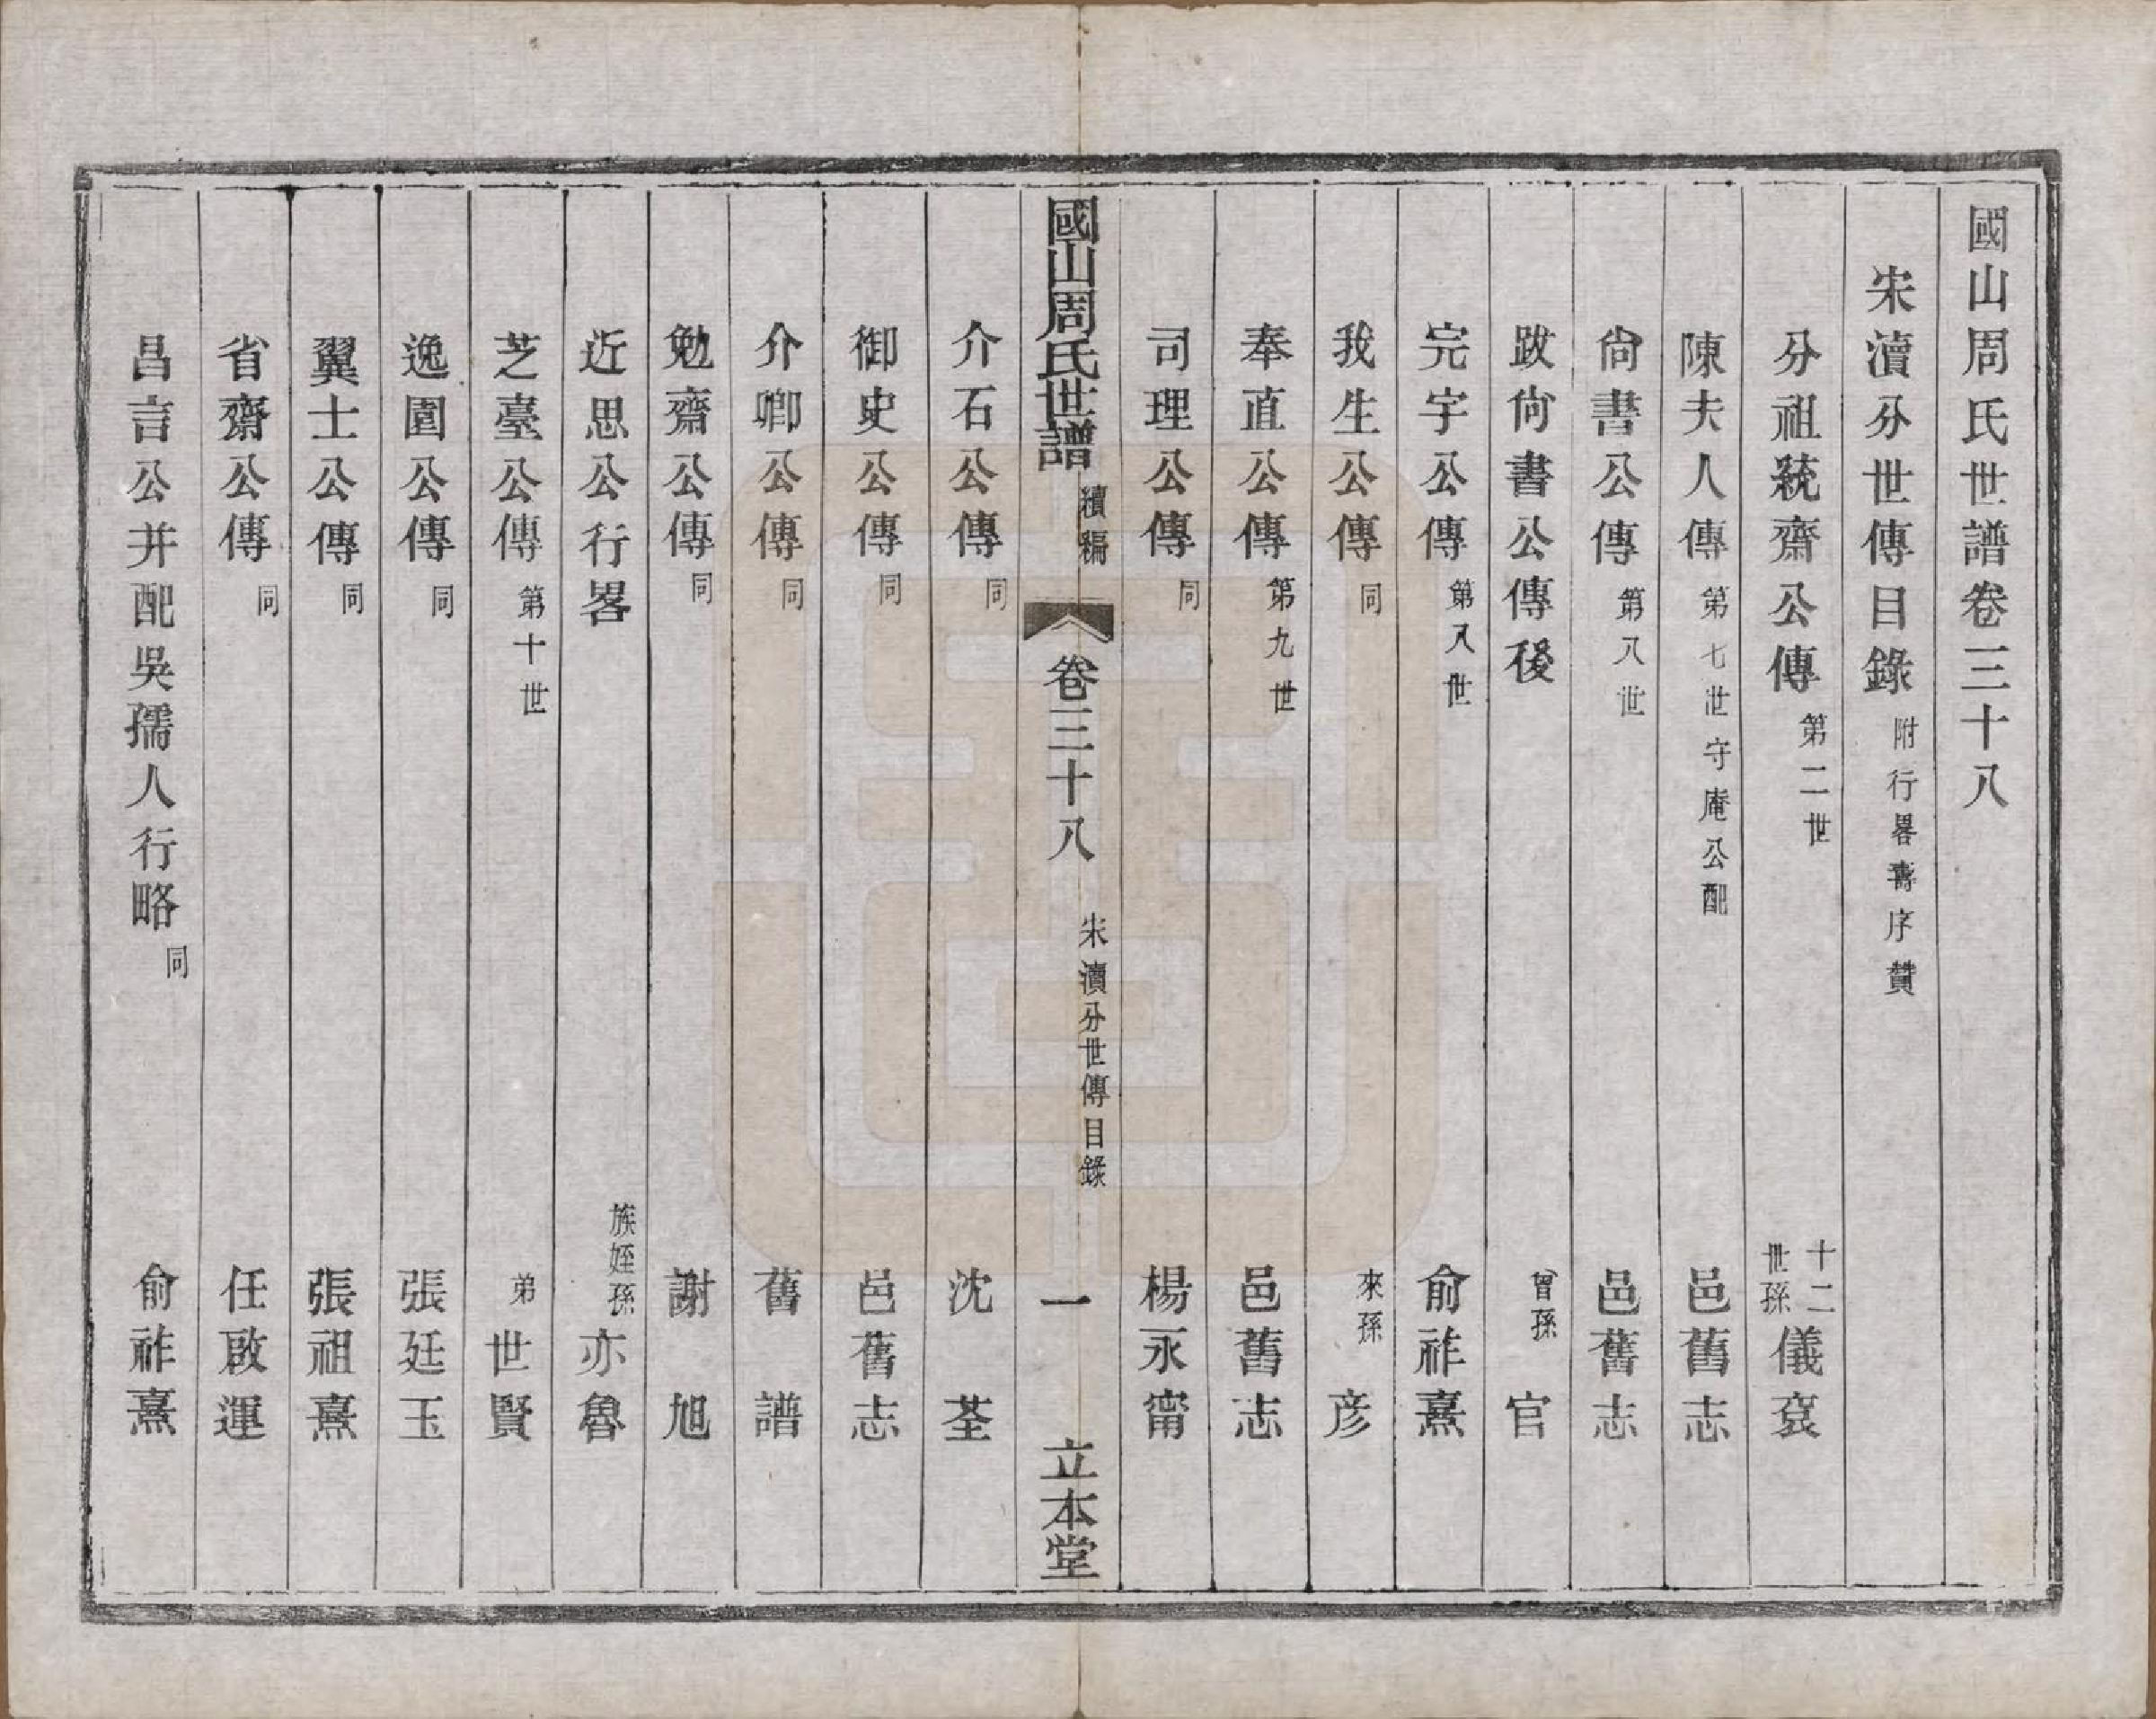 國山周氏世譜卷三十八
宋瀆分世傳目錄 附行畧壽序贊
分祖統齋公傳 第二世 十二世孫儀袞
陳夫人傳 第七世守庵公配 邑舊志
尙書公傳 第八世 邑舊志
跋尙書公傳後 曾孫 官
完宇公傳 第八世 俞祚熹
我生公傳 同 來孫 彦
奉直公傳 第九世 邑舊志
司理公傳 同 楊永甯
國山周氏世譜 續編 卷三十八 宋瀆分世傳目錄 一 立本堂
介石公傳 同 沈荃
御史公傳 同 邑舊志
介卿公傳 同 舊譜
勉齋公傳 同 謝旭
近思公行畧 族姪孫亦魯
芝臺公傳 第十世 弟世賢
逸園公傳 同 張廷玉
翼士公傳 同 張祖熹
省齋公傳 同 任啟運
昌言公并配吳孺人行略 同 俞祚熹